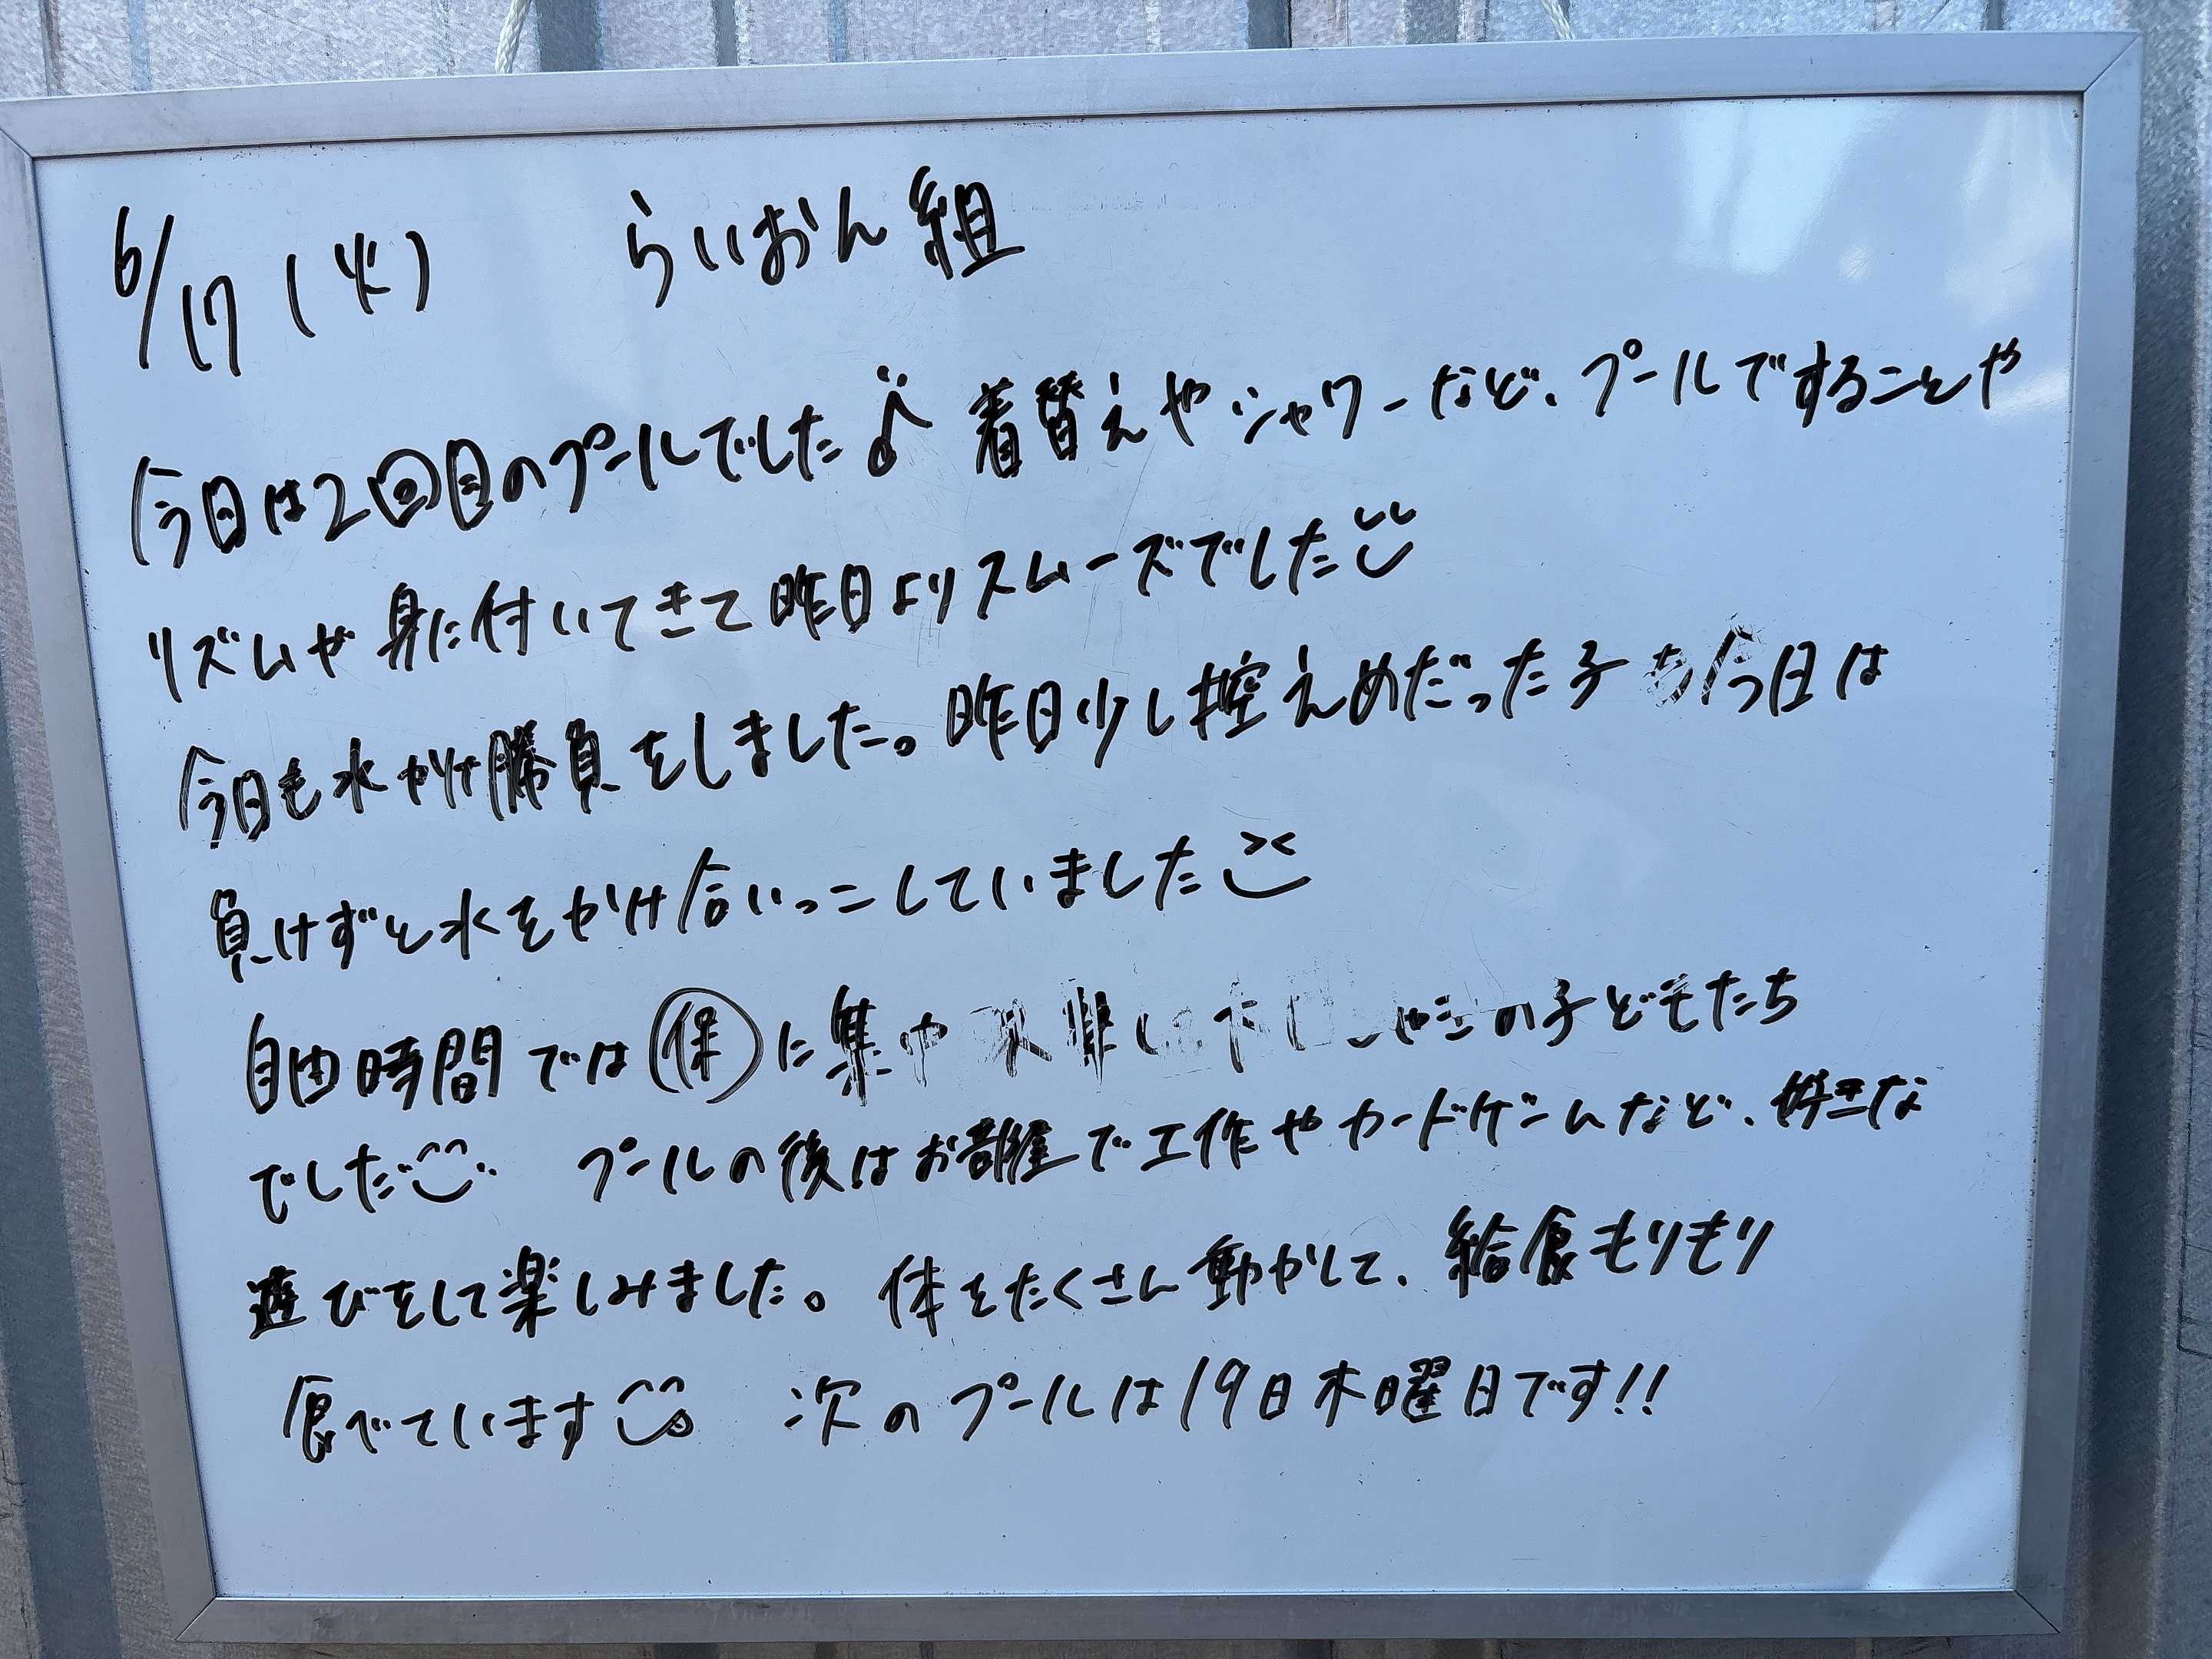 6/17(火) らいおん組
今日は2回目のプールでした♪ 着替えやシャワーなど、プールですることや
リズムが身に付いてきて昨日よりスムーズでした
今日も水かけ勝負をしました。昨日少し控えめだった子も今日は
負けずと水をかけ合いっこしていました
自由時間では㋭に集中 の子どもたち
でした プールの後はお部屋で工作やカードゲームなど、好きな
遊びをして楽しみました。体をたくさん動かして、給食もりもり
食べています 次のプールは19日木曜日です!!